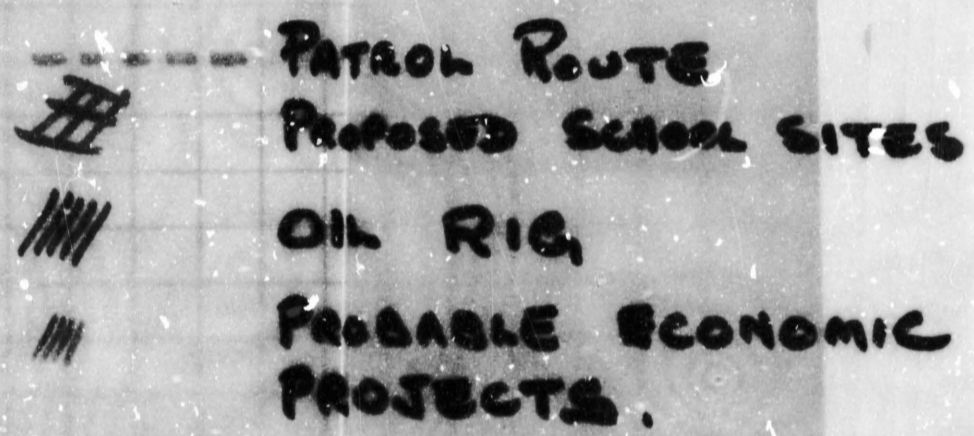 PATROL ROUTE
PROPOSED SCHOOL SITES
OIL RIG
PROBABLE ECONOMIC
PROJECTS.